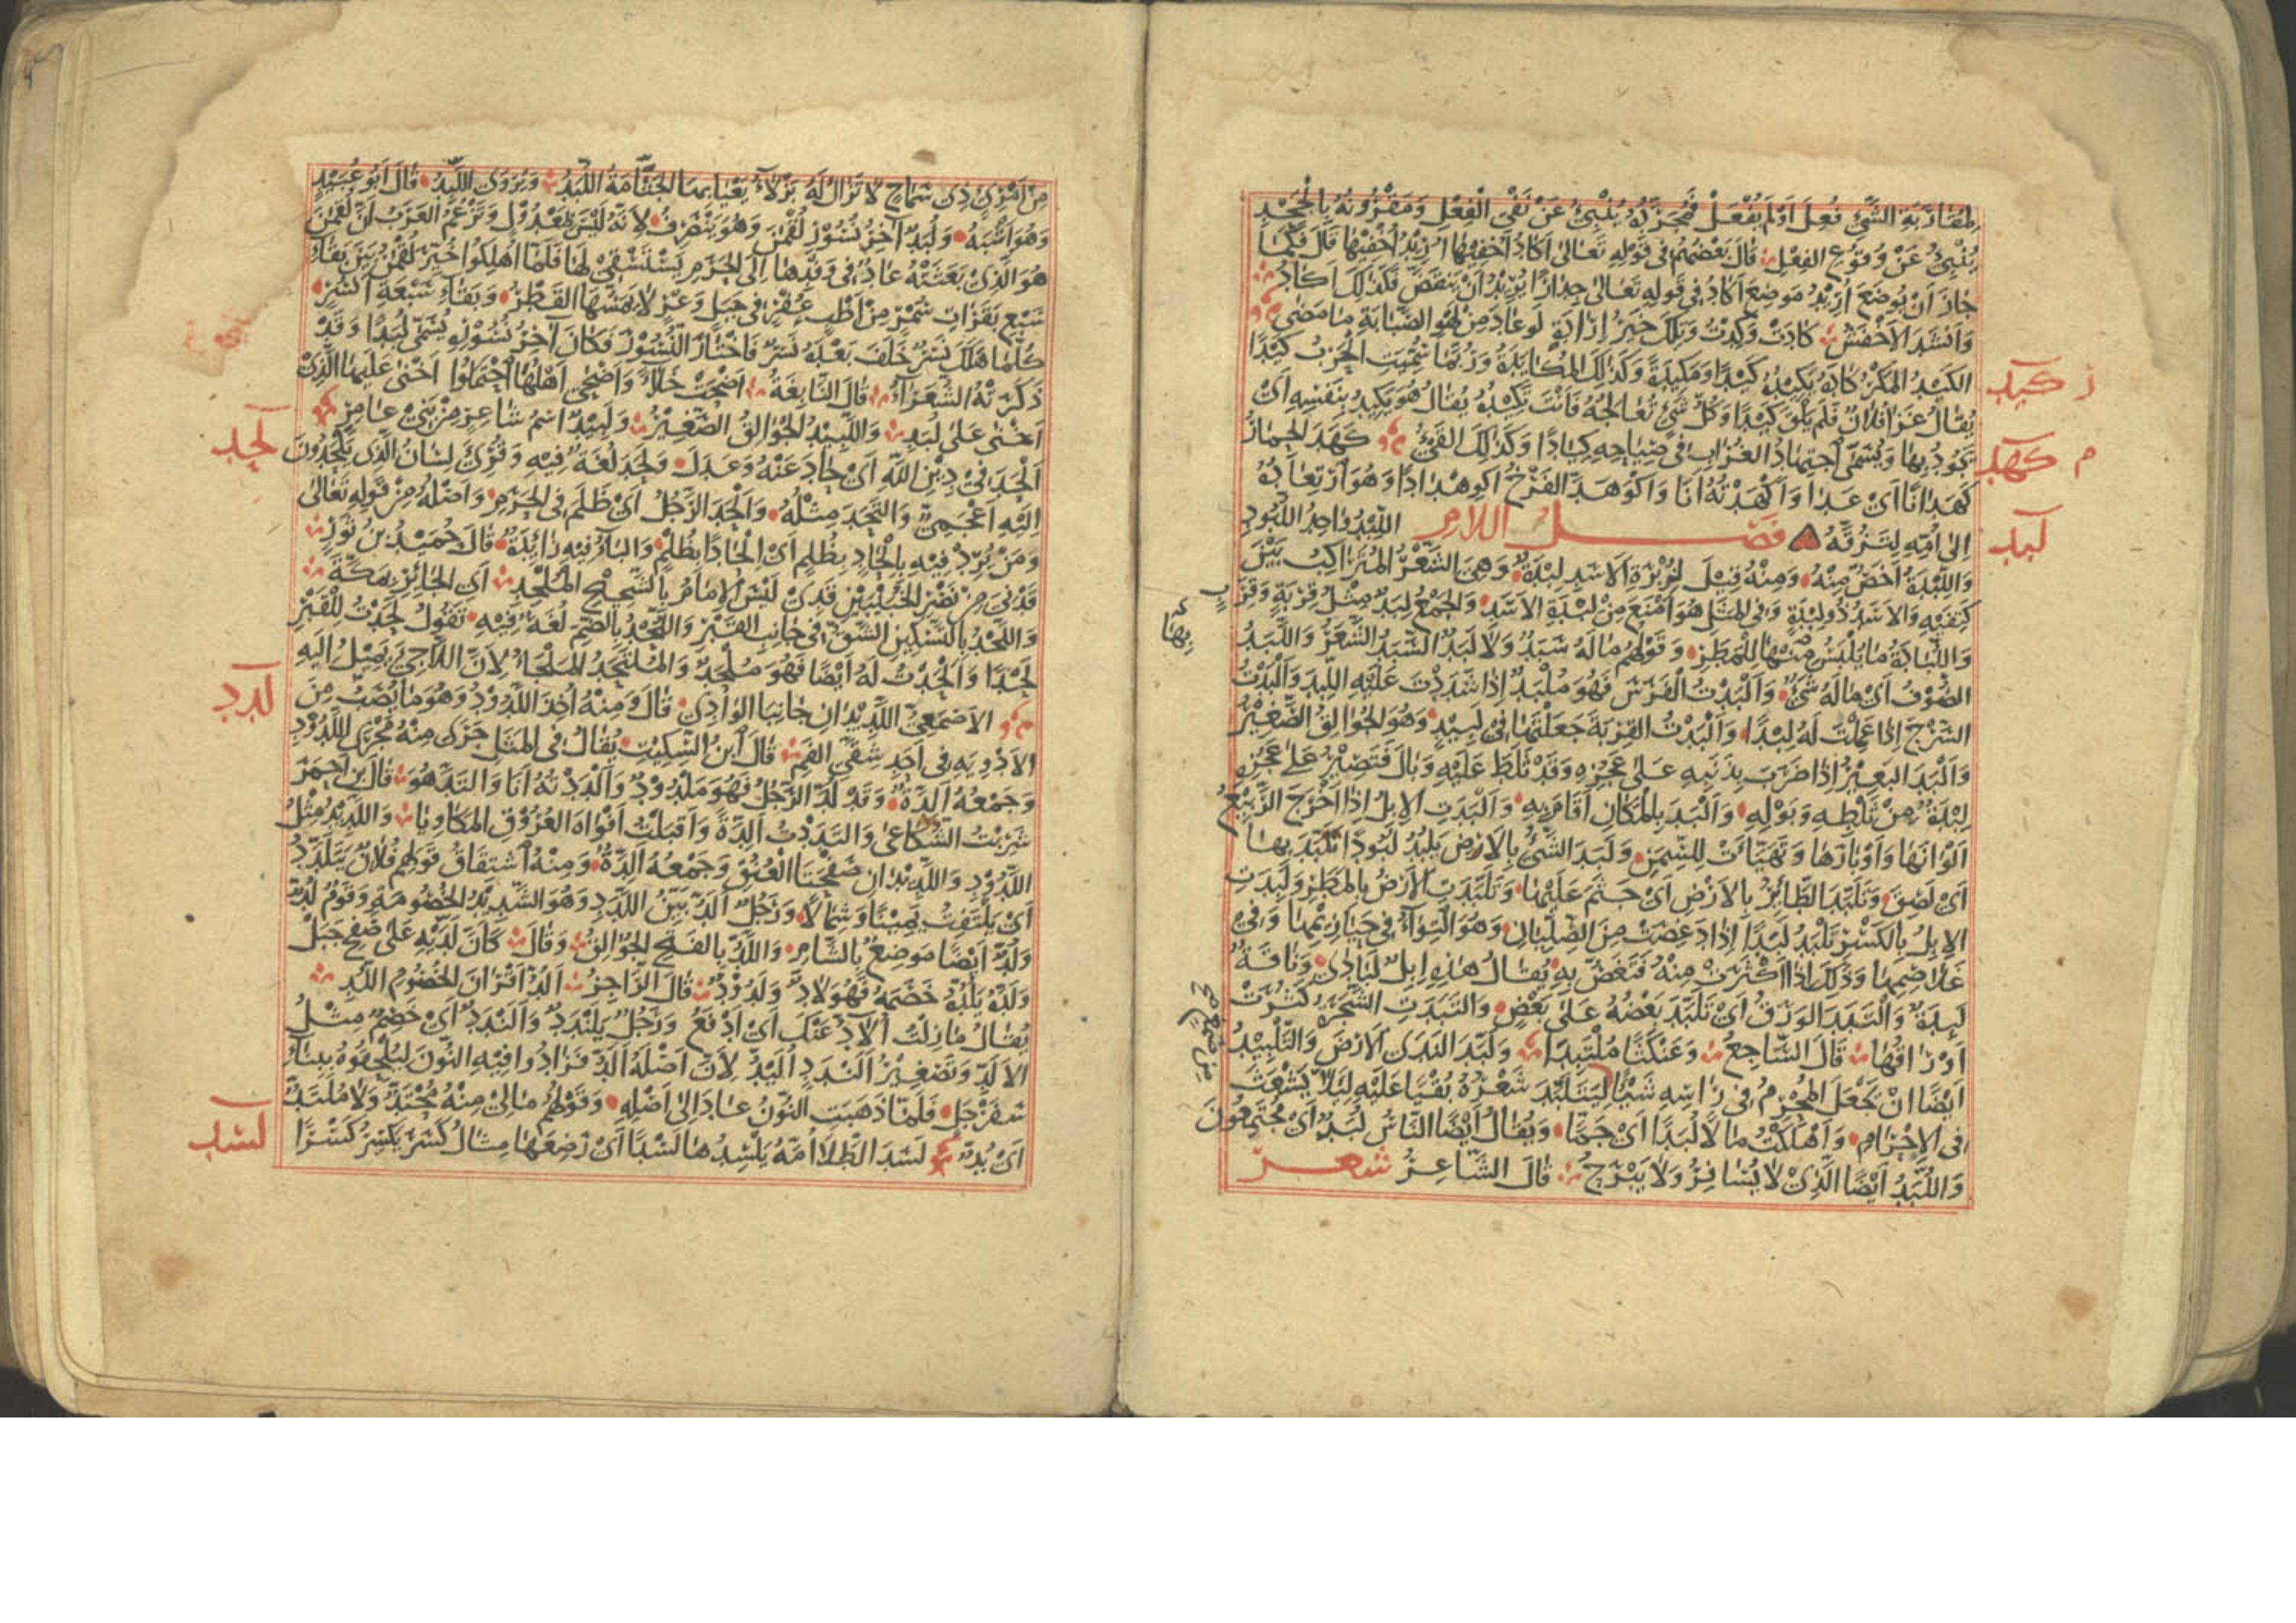 لمقاربة الشئ فعل اولم يفعل فمجرّده ينبئ عن نفى الفعل ومقرونه بالجحد
ينبئ عن وقوع الفعل قال بعضهم فى قوله تعالى اكاد اخفيها اريد اخفيها قال فكما
جاز ان يوضع اريد موضع اكاد فى قوله تعالى جدارا يريد ان ينقض فكذلك اكاد
وانشد الاخفش كادت وكدت وتلك خير ارادة لوعاد من لهو الصبابة ما مضى
كيد
الكيد المكر كاده يكيده كيدا ومكيدة وكذلك المكايدة وربما سميت الحرب كيدا
يقال غزا فلان فلم يلق كيدا وكل شئ تعالجه فانت تكيده يقال هو يكيد بنفسه اى
كهد
يجود بها ويسمى اجتهاد الغراب فى صياحه كيادا وكذلك القئ كهد الحمار
كهدانا اى عدا واكهدته انا واكوهد الفرخ اكوهدادا وهو ارتعاده
لبد
الى امه لتزقه فصل اللام اللبد واحد اللبود
واللبدة اخص منه ومنه قيل لزبرة الاسد لبدة وهى الشعر المتراكب بين
كتفيه والاسد ذو لبدة وفى المثل هو امنع من لبدة الاسد والجمع لبد مثل قربة وقرب
واللبادة ما يلبس منها للمطر وقولهم ماله سبد ولا لبد السبد الشعر واللبد
الصوف اى ماله شئ والبدت الفرس فهو ملبد اذا شددت عليه اللبد والبدت
السرج اذا عملت له لبدا والبدت القربة جعلتها فى لبيد وهو الجوالق الصغير
والبد البعير اذا ضرب بذنبه على عجزه وقد ثلط عليه وبال فتصير على عجزه
لبدة من ثلطه وبوله والبد بالمكان اقام به والبدت الابل اذا اخرج الربيع
الوانها واوبارها وتهيأت للسمن ولبد الشئ بالارض يلبد لبودا تلبد بها
اى لصق وتلبد الطائر بالارض اى جثم عليها وتلبدت الارض بالمطر ولبدت
الابل بالكسر تلبد لبدا اذا دغصت من الصليان وهو التواء فى حيازيمها وفى
غلاصمها وذلك اذا اكثرت منه فتغص به يقال هذه ابل لبادى وناقة
لبدة والتبد الورق اى تلبد بعضه على بعض والتبدت الشجرة كثرت
اوراقها قال الساجع وعنكثا ملتبدا ولبد الندى الارض والتلبيد
ايضا ان يجعل المحرم فى راسه شيأ ليتلبد شعره بقيا عليه لئلا يشعث
فى الاحرام واهلكت مالا لبدا اى جما ويقال ايضا الناس لبد اى مجتمعون
واللبد ايضا الذى لا يسافر ولا يبرح قال الشاعر شعر
من امرئ ذى سماح لا تزال له بزلاء يعيا بها الجثّامة اللبد ويروى اللبد قال ابو عبيد
وهو اشبه ولبد آخر نسور لقمن وهو ينصرف لانه ليس بمعدول وتزعم العرب ان لقمن
هو الذى بعثته عاد فى وفدها الى الحرم يستسقى لها فلما اهلكوا خير لقمن بين بقاء
سبع بقرات سمر من اظب عفر فى جبل وعر لا يمسها القطر وبقاء سبعة انسر
كلما هلك نسر خلف بعده نسر فاختار النسور فكان آخر نسوره يسمى لبدا وقد
ذكرته الشعراء قال النابغة اضحت خلاء واضحى اهلها احتملوا اخنى عليها الذى
لحد
اخنى على لبد واللبيد الجوالق الصغير ولبيد اسم شاعر من بنى عامر
الحد فى دين الله اى حاد عنه وعدل ولحد لغة فيه وقرئ لسان الذى يلحدون
اليه اعجمى والتحد مثله والحد الرجل اى ظلم فى الحرم واصله من قوله تعالى
ومن يرد فيه بالحاد بظلم اى الحادا بظلم والباء فيه زائدة قال حميد بن ثور
قدنى من نصر الخبيبين قدى ليس الامام بالشحيح الملحد اى الجائر بمكة
واللحد بالتسكين الشق فى جانب القبر واللحد بالضم لغة فيه تقول لحدت للقبر
لحدا والحدت له ايضا فهو ملحد والملتحد الملجأ لان اللاجئ يميل اليه
لدد
الاصمعى اللديدان جانبا الوادى قال ومنه اخذ اللدود وهو ما يصب من
الادوية فى احد شقى الفم قال ابن السكيت يقال فى المثل جرى منه مجرى اللدود
وجمعه الدة وقد لد الرجل فهو ملدود والددته انا والتد هو قال ابن احمر
شربت الشكاعى والتددت الدة واقبلت افواه العروق المكاويا واللديد مثل
اللدود واللديدان صفحتا العنق وجمعه الدة ومنه اشتقاق قولهم فلان يتلدد
اى يلتفت يمينا وشمالا ورجل الد بين اللدد وهو الشديد الخصومة وقوم لد
ولد ايضا موضع بالشام واللد بالفتح الجوالق وقال كان لديه على صفح جبل
ولده يلده خصمه فهو لاد ولدود قال الراجز الد اقران الخصوم اللد
يقال مازلت الاد عنك اى ادفع ورجل يلندد والندد اى خصم مثل
الالد وتصغير الندد اليد لان اصله الد فزادوا فيه النون ليلحقوه ببناء
سفرجل فلما ذهبت النون عاد الى اصله وقولهم مالى منه محتد ولا ملتد
لسد
اى بد لسد الطلا امه يلسدها لسدا اى رضعها مثال كسر يكسر كسرا